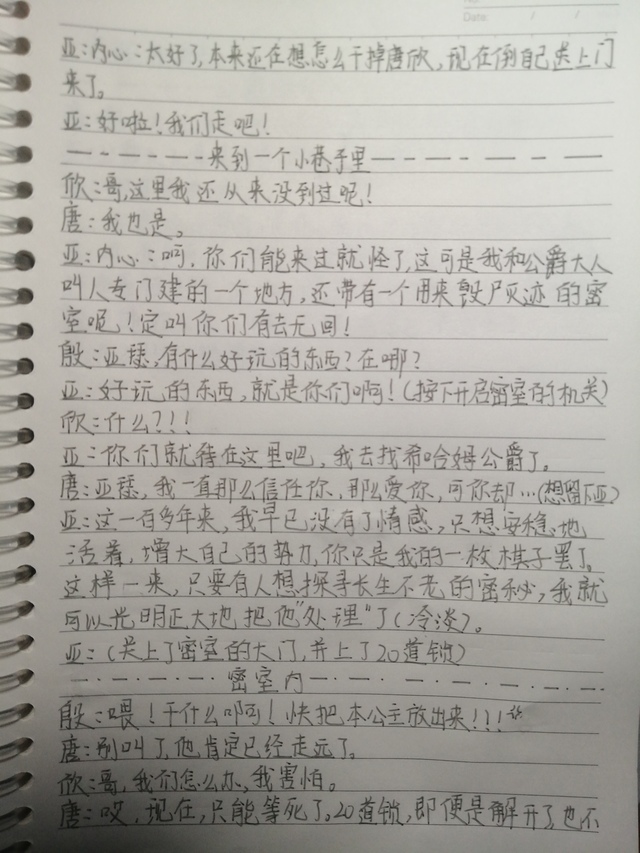 No.
Date / /
亚:内心:太好了,本来还在想怎么干掉唐欣,现在倒自己送上门
来了。
亚:好啦!我们走吧!
来到一个小巷子里
欣:哥,这里我还从来没到过呢!
唐:我也是。
亚:内心:呵,你们能来过就怪了,这可是我和公爵大人
叫人专门建的一个地方,还带有一个用来毁尸灭迹的密
室呢!定叫你们有去无回!
殷:亚瑟,有什么好玩的东西?在哪?
亚:好玩的东西,就是你们啊!(按下开启密室的机关)
欣:什么?!!
亚:你们就待在这里吧,我去找希哈姆公爵了。
唐:亚瑟,我一直那么信任你,那么爱你,可你却…(想留下亚)
亚:这一百多年来,我早已没有了情感,只想安稳地
活着,增大自己的势力,你只是我的一枚棋子罢了。
这样一来,只要有人想探寻长生不老的密秘,我就
可以光明正大地把他"处理"了(冷淡)。
亚:(关上了密室的大门,并上了20道锁)
密室内
殷:喂!干什么啊!快把本公主放出来!!!
唐:别叫了,他肯定已经走远了。
欣:哥,我们怎么办,我害怕。
唐:哎,现在,只能等死了。20道锁,即便是解开了,也不